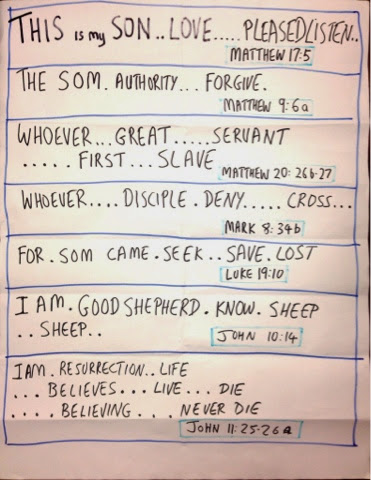 THIS is my SON..LOVE.....PLEASED LISTEN..
MATTHEW 17:5
THE SOM. AUTHORITY... FORGIVE.
MATTHEW 9:6a
WHOEVER...GREAT.....SERVANT
.....FIRST...SLAVE
MATTHEW 20:26b-27
WHOEVER....DISCIPLE.DENY.....CROSS...
MARK 8:34b
FOR.SOM CAME.SEEK..SAVE.LOST
LUKE 19:10
I AM.GOOD SHEPHERD.KNOW.SHEEP
..SHEEP..
JOHN 10:14
I AM.RESURRECTION..LIFE
...BELIEVES...LIVE...DIE
....BELIEVING...NEVER DIE
JOHN 11:25-26a